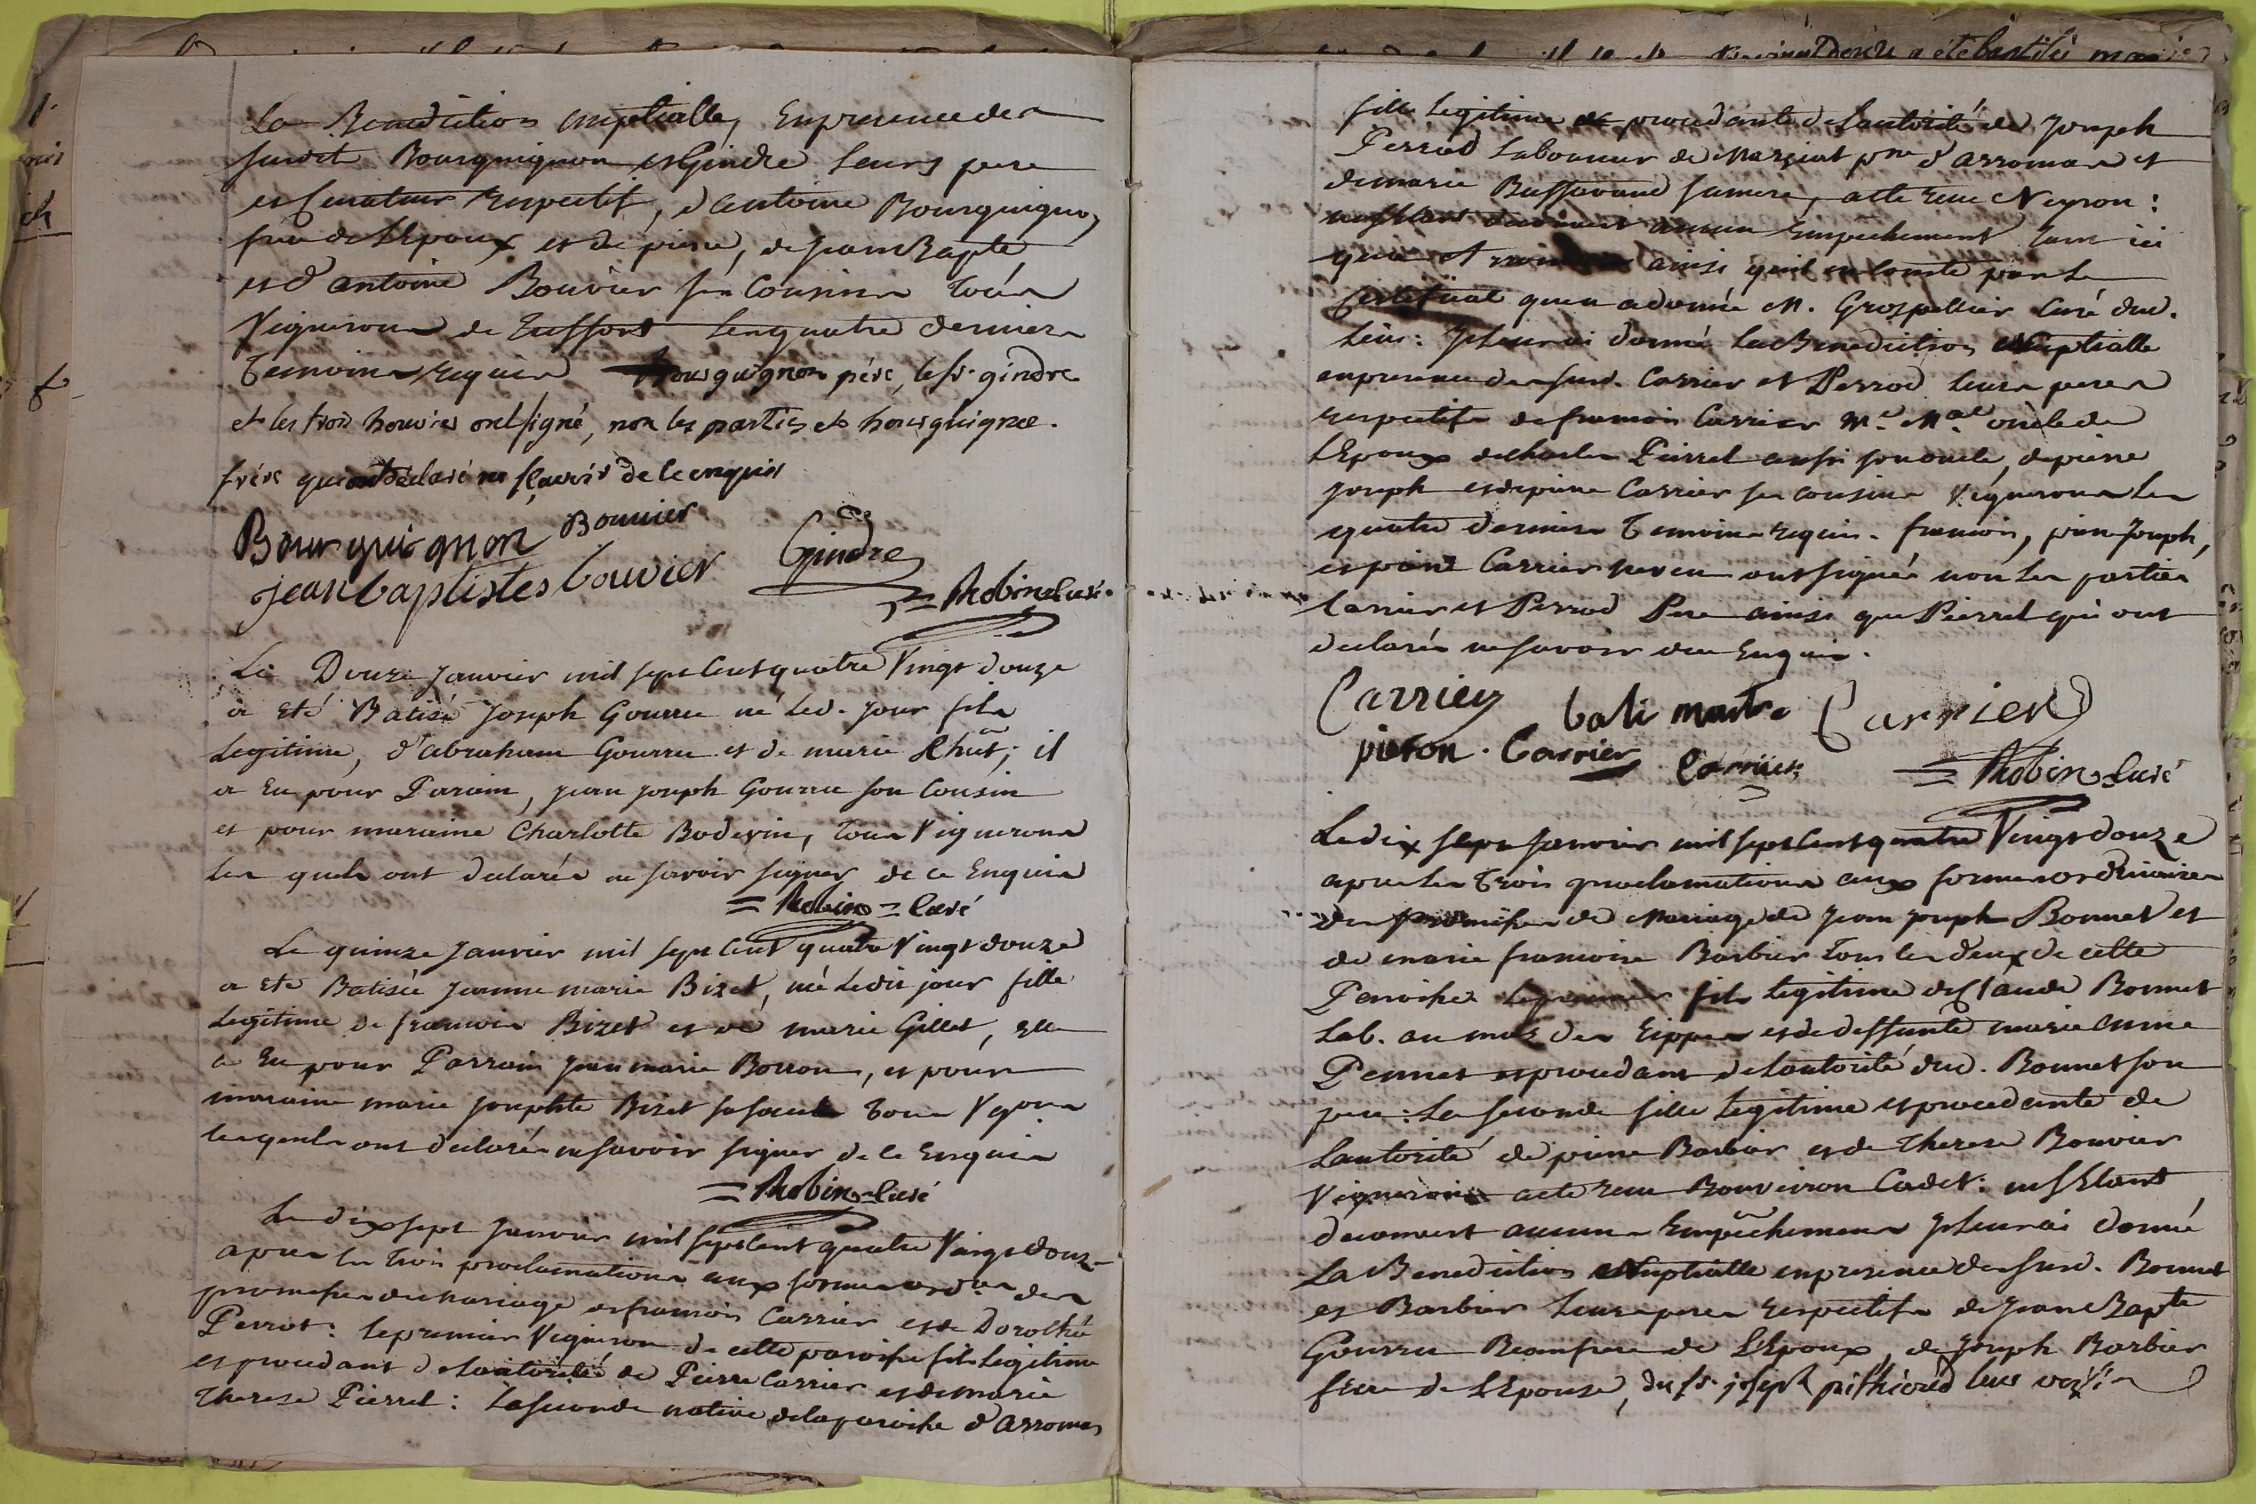 La Benediction nuptialle, en presence des
susdit Bourguignon et Gindre leurs pere
et Curateur respectif, d'antoine Bourguignon
frere de L'Epoux et de pierre, de jean Bapte
et d'antoine Bouvier ses Cousins tous
Vignerons de Les quatre derniers
Temoins requis Bourguignon père, le sr. gindre
et les trois bouvier ont signé, non les parties et bourguignon
frère qui ont déclaré ne sçavoir de ce enquis
Bourguignon Bouvier
jean baptistes bouvier Gindre
= Robin Curé
Le Douze janvier mil sept cent quatre Vingt douze
a Eté Batisé joseph Gourru né led. jour fils
legitime, d'abraham Gourru et de marie ; il
a Eu pour Parain, jean joseph Gourru son Cousin
et pour maraine Charlotte Bodevin, tous Vignerons
les quels ont declarés ne savoir signer de ce Enquis
= Robin = Curé
Le quinze janvier mil sept cent quatre Vingt douze
a Eté Batisée jeanne marie Bizet, né ledit jour fille
legitime de francois Bizet et de marie Gillet, elle
a Eu pour Parrain jean marie Borron, et pour
maraine marie josephte Bizet sa soeur tous Vgons
lesquels ont declarés ne savoir signer de ce Enquis
= Robin = Curé
Le dix sept janvier mil sept cent quatre Vingt douze
apres les trois proclamations aux formes ordres des
promesses de Mariage de francois Carrier et de Dorothé
Perrot : le premier Vigneron de cette paroisse fils legitime
et procedant de Lautorité de Pierre Carrier et de marie
Therese Pierrel : La seconde native de la paroisse d'arromas
fille legitime et procedante de Lautorité de joseph
Perrod Laboureur de Marsiat pse d'arromas et
de marie Buffavand sa mere, acte recu Neyron :
ne s'etant decouvert aucun Empechement tant ici
qu'a ainsi quil en conste par le
Certificat qu'en a donné M. Grospellier Curé dud.
lieu : je leur ai donné La Benediction Nuptialle
en presence des susd. Carrier et Perrod leurs peres
respectifs de francois Carrier Me. Mal oncle de
L'Epoux de charles Pierrel aussi son oncle, de pierre
joseph et de pierre Carrier ses cousins Vignerons les
quatre derniers Temoins requis. francois, pierre joseph,
et pierre Carrier neveu ont signés non les parties
Carrier et Perrod Pere ainsi que Pierrel qui ont
declarés ne savoir de ce Enquis.
Carrier Carrier
Carrier Carrier
= Robin = Curé
Le dix sept janvier mil sept cent quatre Vingt douze
apres les trois proclamations aux formes ordinaires
des promesses de Mariage de jean joseph Bonnet et
de marie francoise Barbier tous les deux de cette
Paroisse le premier fils legitime de Claude Bonnet
Lab. au mas des Eippes et de deffunte marie anne
Pernet et procedant de Lautorité dud. Bonnet son
pere : La seconde fille legitime et procedante de
Lautorité de pierre Barbier et de Therese Bouvier
Vignerons acte recu Bouveiron Cadet : ne s'etant
decouvert aucuns Empêchemens je leur ai donné
La Benediction Nuptialle en presence des susd. Bonnet
et Barbier leurs peres respectifs de jean Bapte
Gourru Beaufrere de L'Epoux, de joseph Barbier
frere de L'Epouse, du sr. joseph